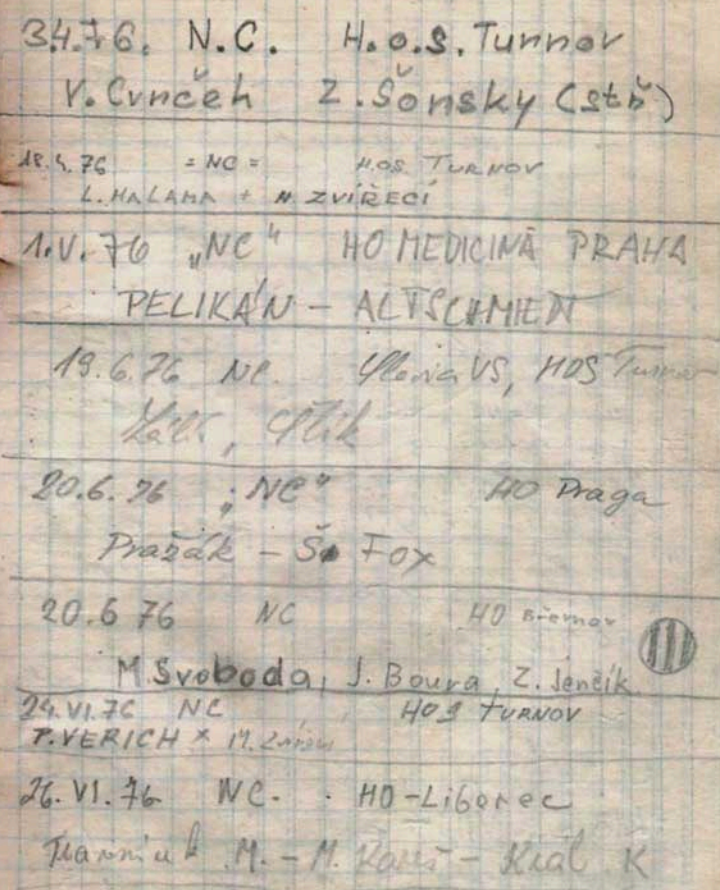 3.4.76. N.C. H.O.S. Turnov
V. Cvrček Z. Šonsky (stř)
18.4.76 = NC = H.O.S TURNOV
L. HALAMA + ZVÍŘECÍ
1.V.76 „NC“ HO MEDICINA PRAHA
PELIKÁN - ALTSCHMIEDT
19.6.76 NC. VS, HOS Turnov
20.6.76 „NC“ HO Praga
Pražák - Š. Fox
20.6 76 NC HO Břevnov
M. Svoboda, J. Boura, Z. Jenčík
24.VI.76 NC HOS TURNOV
P. VERICH × M.
26.VI.76 NC. HO - Liberec
M. - M. - Král K